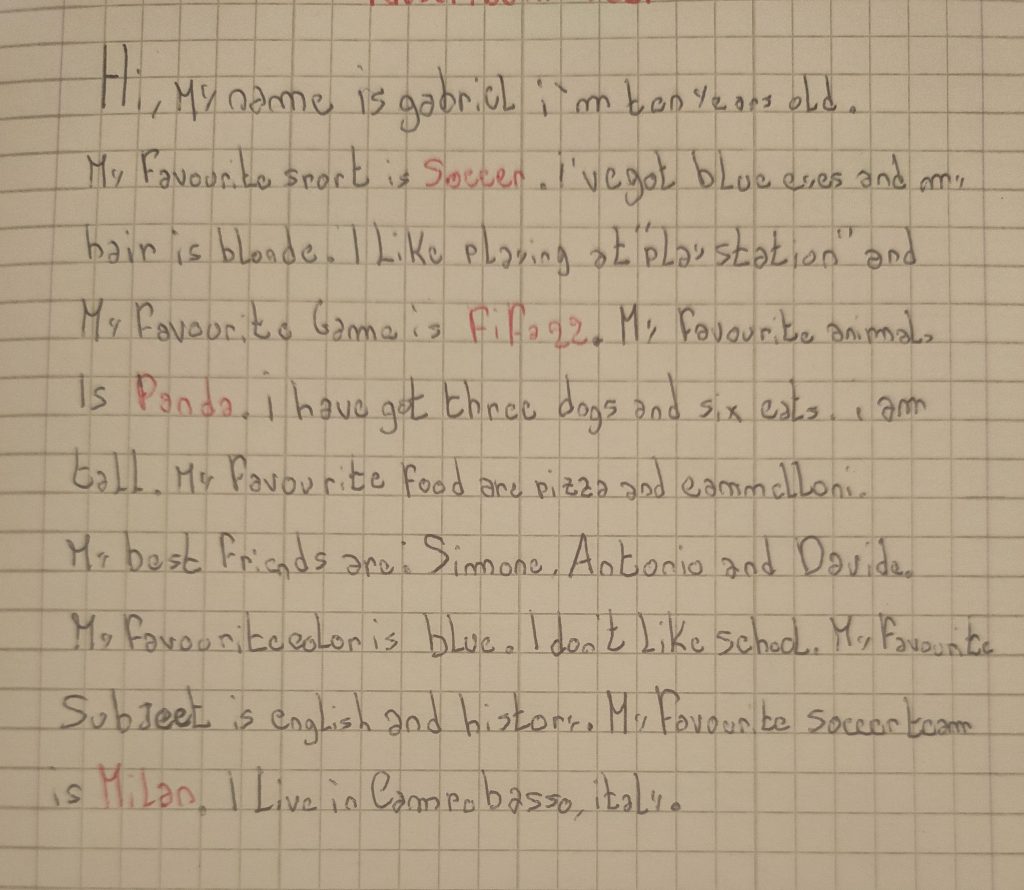 Hi, My name is gabriel i'm ten years old.
My Favourite sport is Soccer. i've got blue eyes and my
hair is blonde. I Like playing at "playstation" and
My Favourite Game is Fifa22. My Favourite animal
Is Panda. i have got three dogs and six cats. i am
tall. My Favourite Food are pizza and cannelloni.
My best Friends are: Simone, Antonio and Davide.
My Favourite color is blue. I don't Like school. My Favourite
Subject is english and history. My Favourite soccer team
is Milan. I Live in Campobasso, italy.